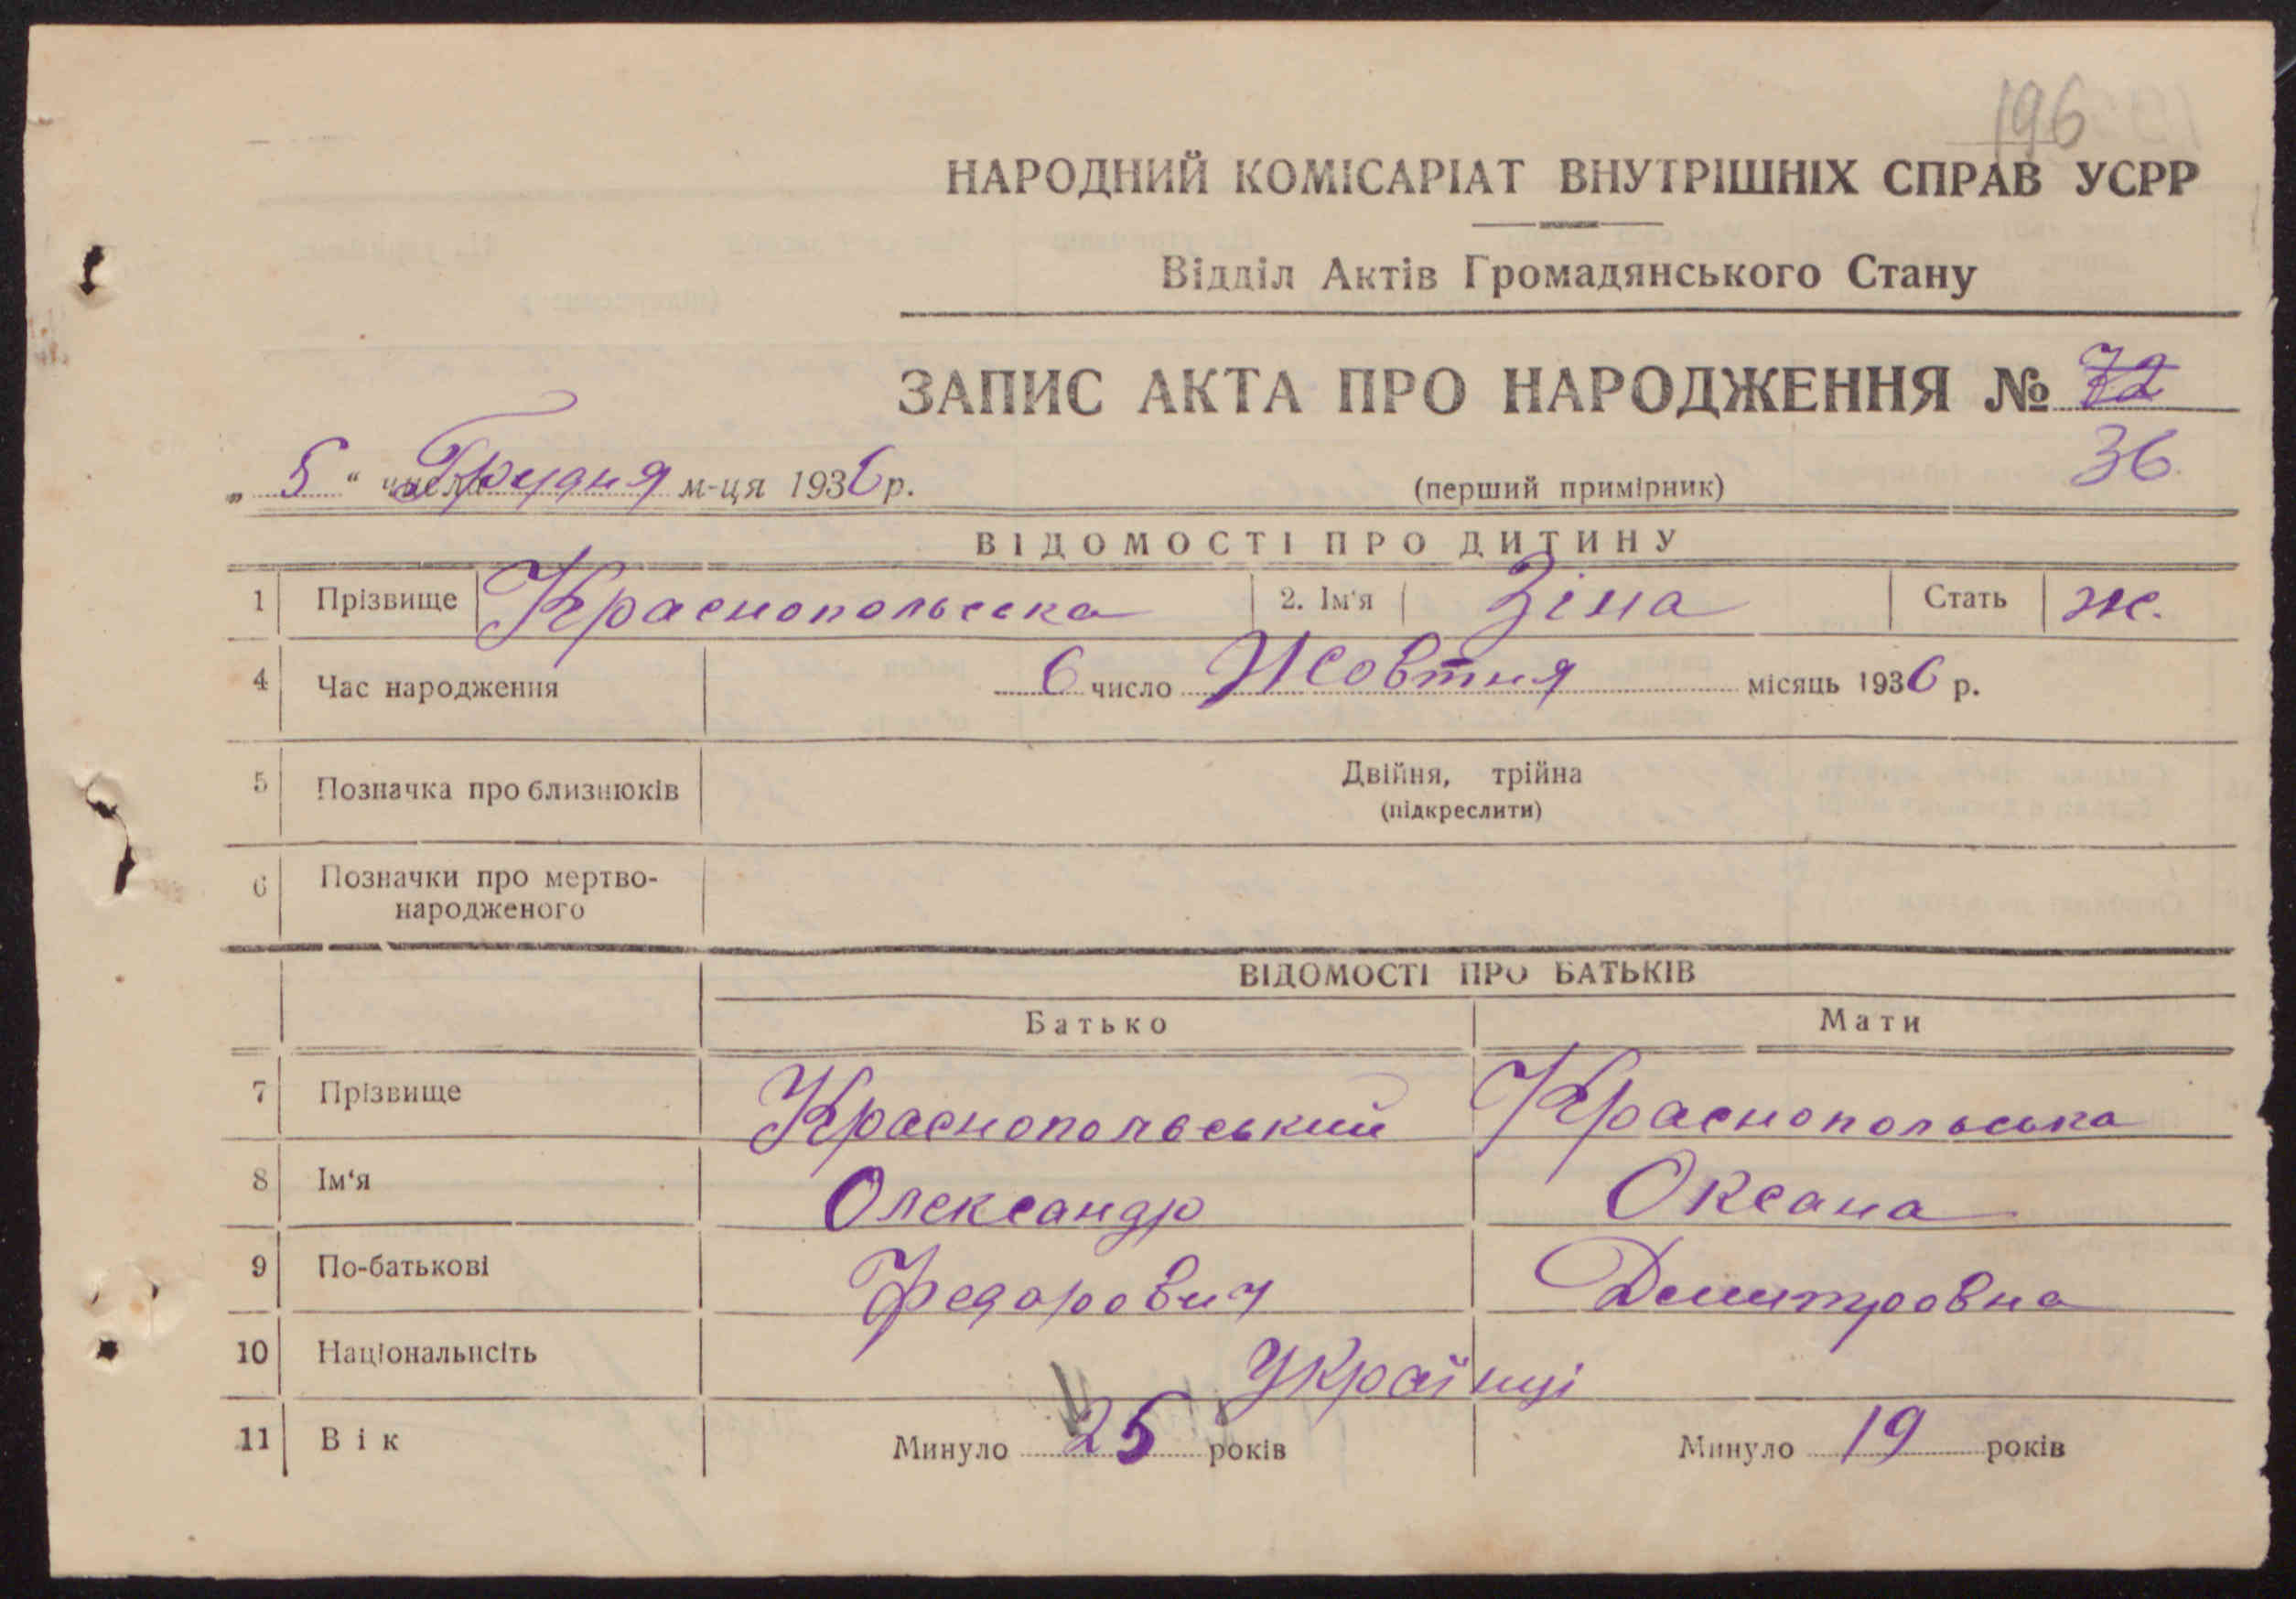 196
НАРОДНИЙ КОМІСАРІАТ ВНУТРІШНІХ СПРАВ УСРР
Відділ Актів Громадянського Стану
ЗАПИС АКТА ПРО НАРОДЖЕННЯ № 72
36
„ 5 “ числа Грудня м-ця 1936 р. (перший примірник)
ВІДОМОСТІ ПРО ДИТИНУ
1 Прізвище Краснопольська 2. Ім'я Зіна Стать ж.
4 Час народження 6 число Жовтня місяць 1936 р.
5 Позначка про близнюків Двійня, трійна
(підкреслити)
6 Позначки про мертво-
народженого
ВІДОМОСТІ ПРО БАТЬКІВ
Батько Мати
7 Прізвище Краснопольський Краснопольська
8 Ім'я Олександр Оксана
9 По-батькові Федорович Демитровна
10 Національнсіть Українці
11 Вік Минуло 25 років Минуло 19 років